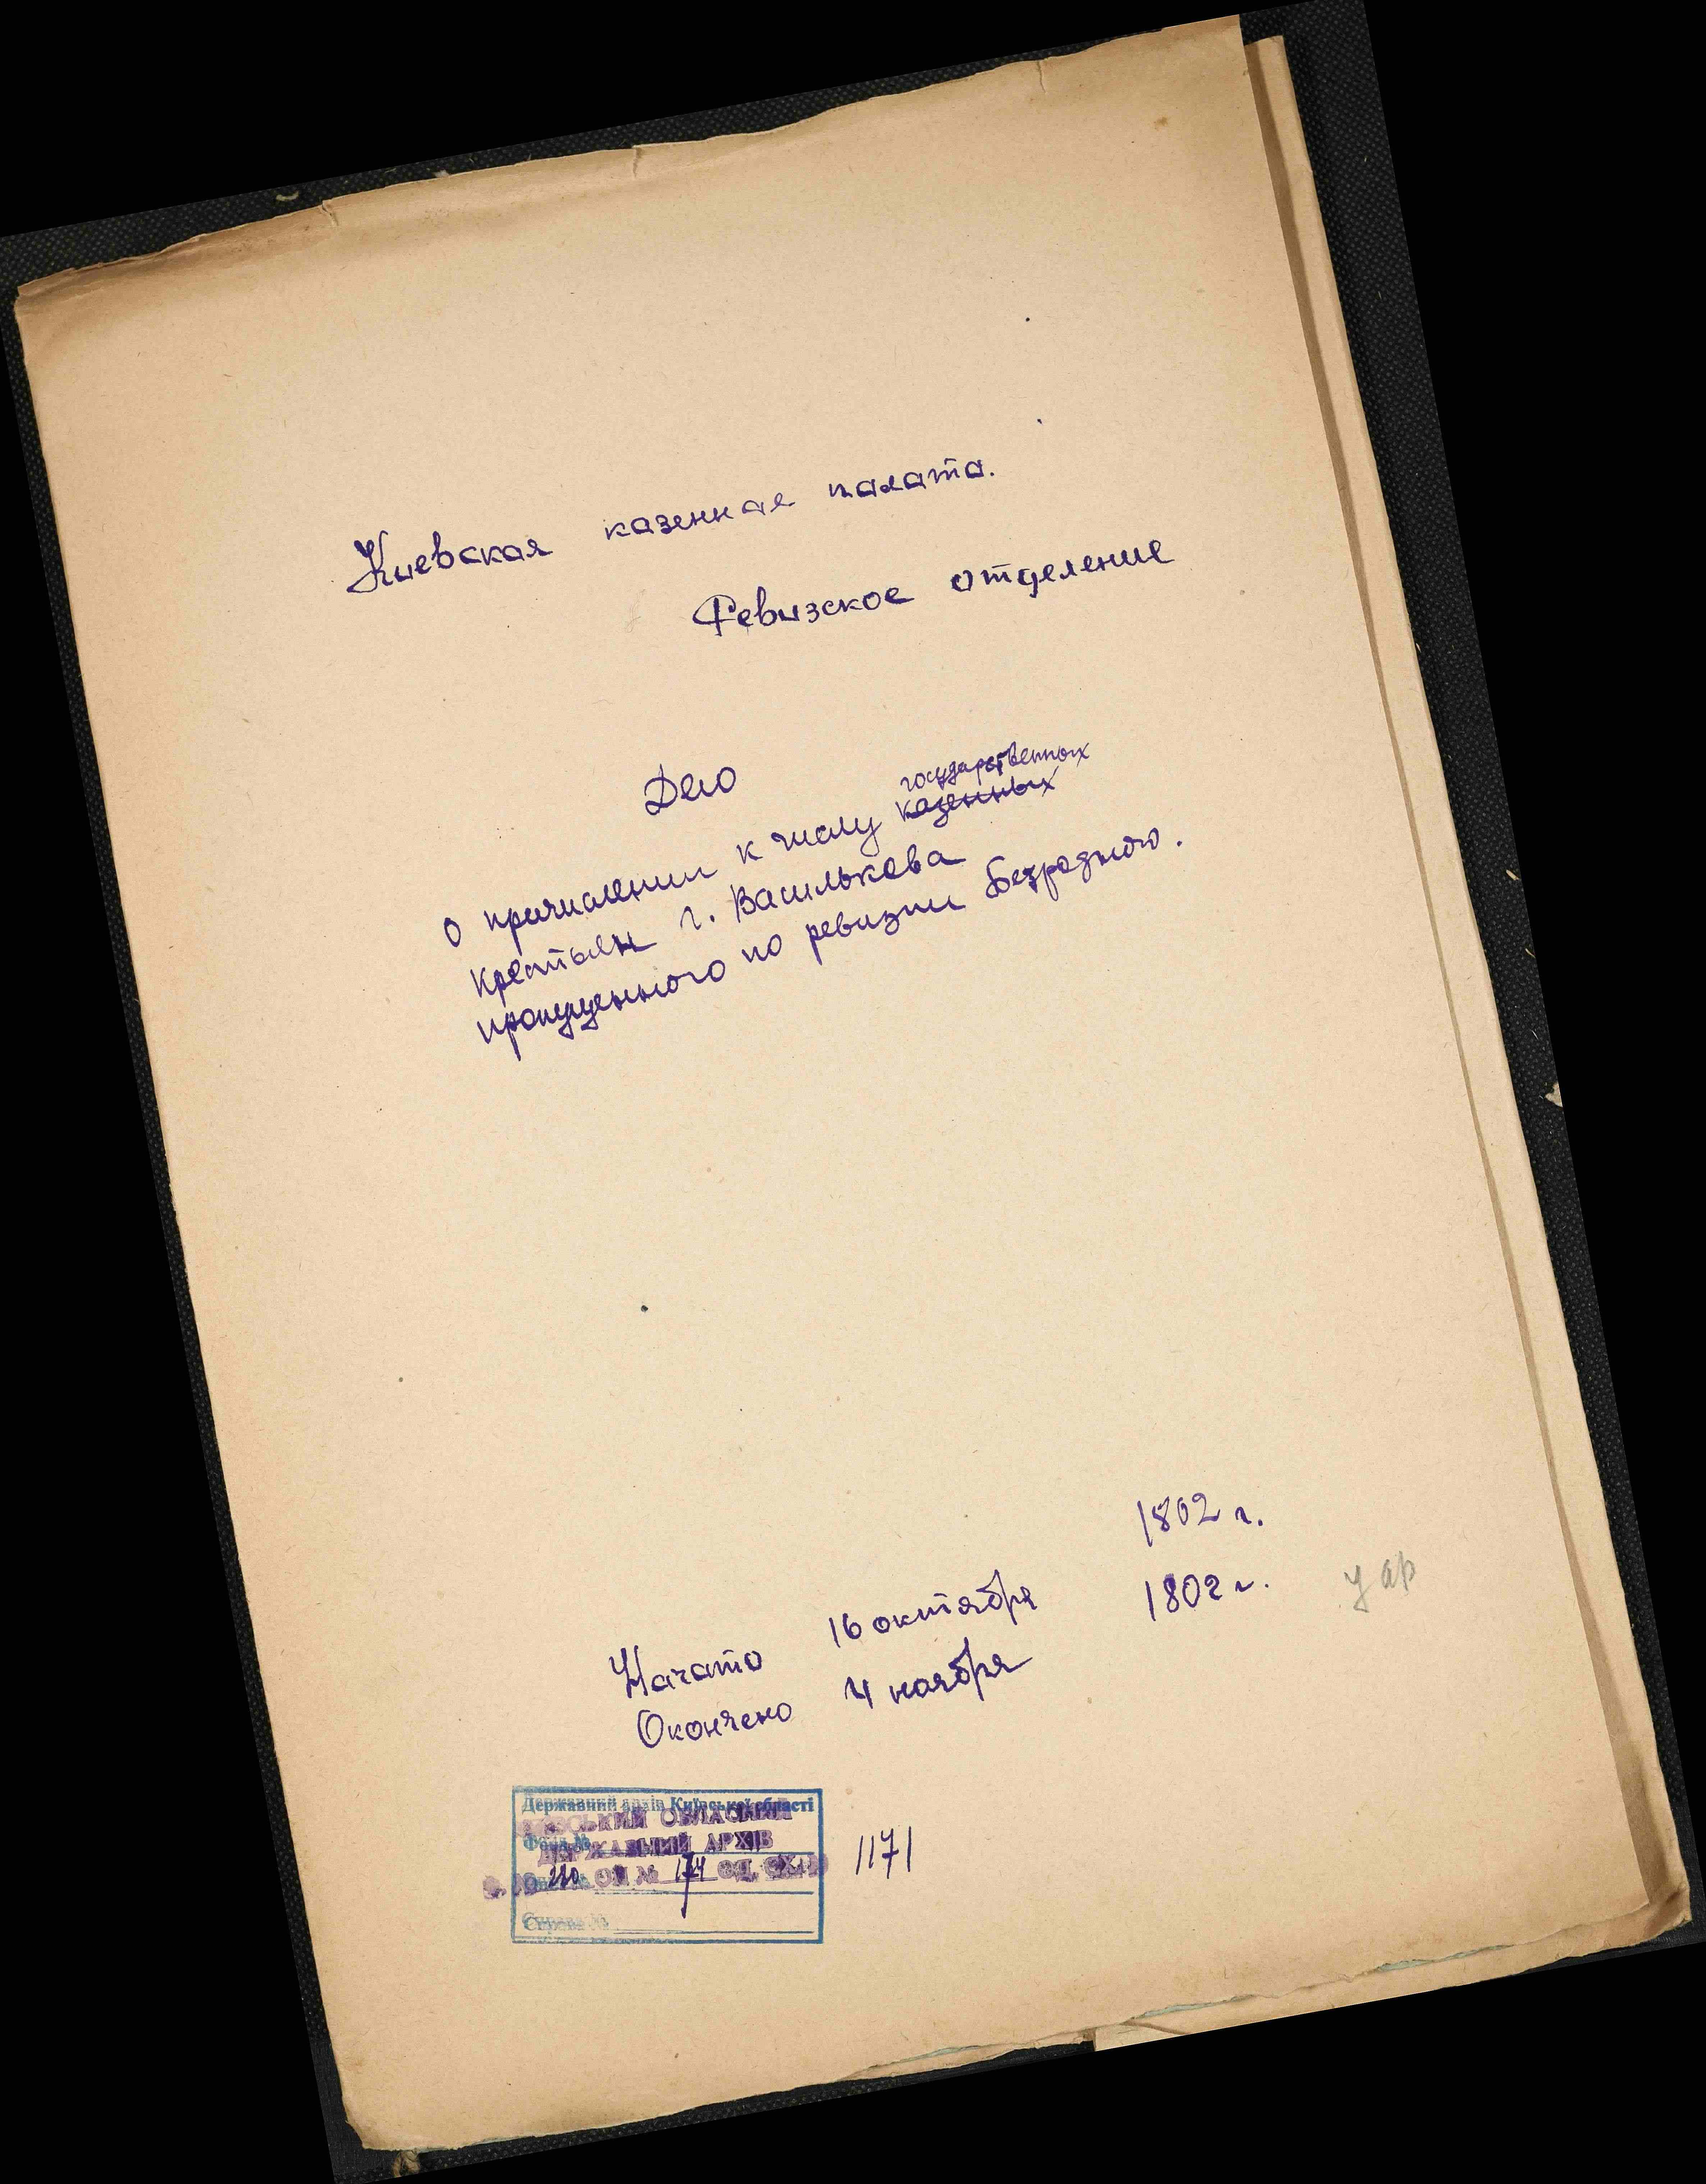 Киевская казенная палата.
Ревизское отделение
Дело
государственных
о причислении к числу казенных
крестьян г. Василькова
пропущенного по ревизии Безродного.
1802 г.
Начато 16 октября 1802 г.
Окончено 4 ноября
Державний архів Київської області
КИЇВСЬКИЙ ОБЛАСНИЙ
Фонд №
ДЕРЖАВНИЙ АРХІВ
280 ОП № 174 ОД. ЗБ. 1171
Справа №